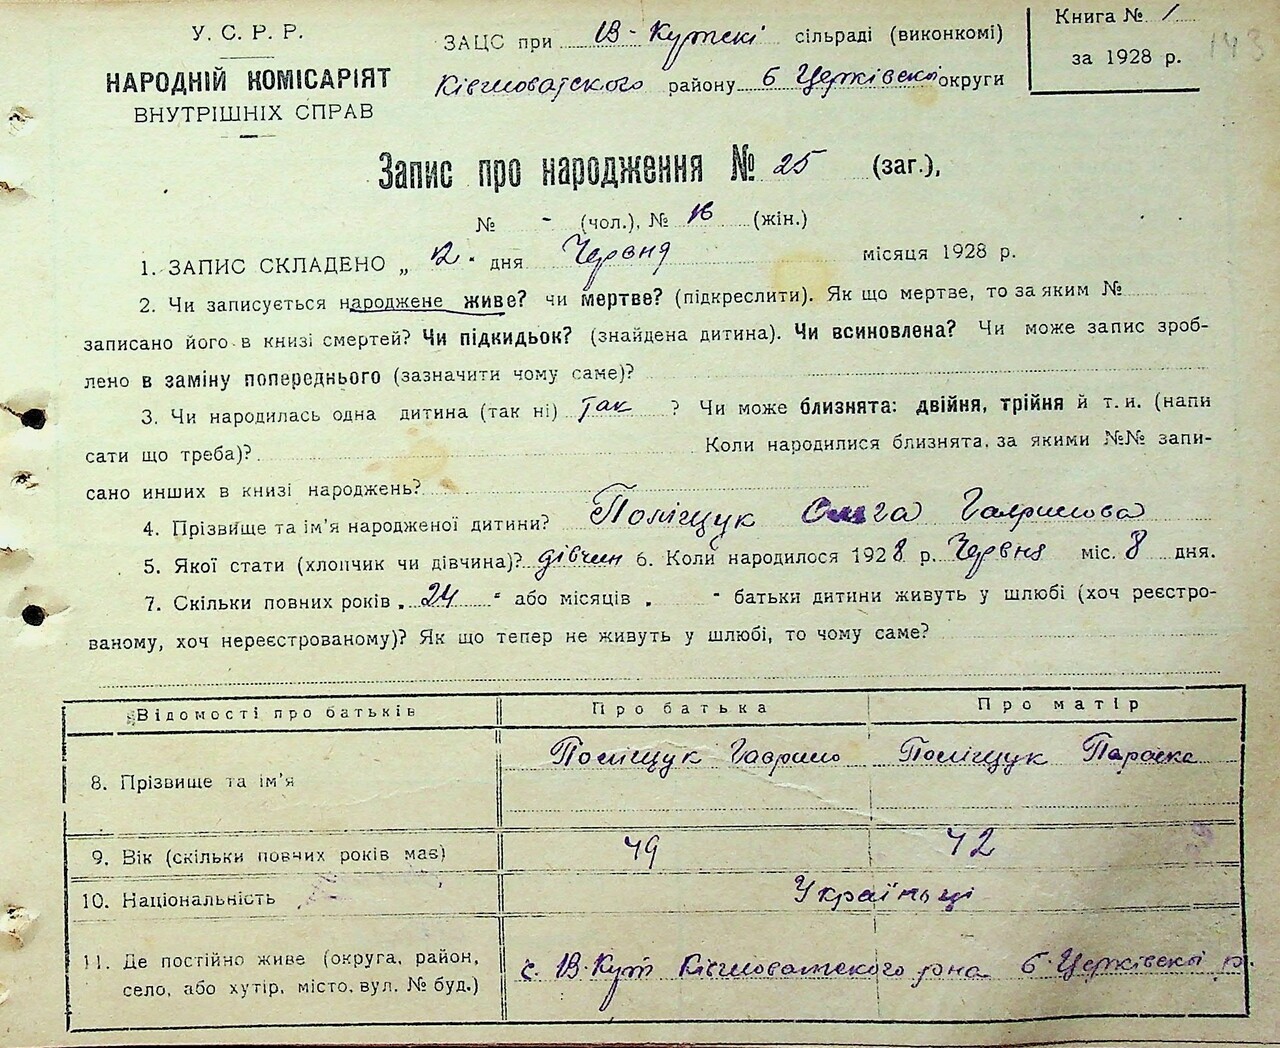 У. С. Р. Р.
НАРОДНІЙ КОМІСАРІЯТ
ВНУТРІШНІХ СПРАВ
ЗАЦС при В-Кутскі сільраді (виконкомі)
Ківшоватского району Б Церківскої округи
Книга № 1
за 1928 р.
143
Запис про народження № 25 (заг.),
№ - (чол.), № 16 (жін.)
1. ЗАПИС СКЛАДЕНО „ 12 " дня Червня місяця 1928 р.
2. Чи записується народжене живе? чи мертве? (підкреслити). Як що мертве, то за яким №
записано його в книзі смертей? Чи підкидьок? (знайдена дитина). Чи всиновлена? Чи може запис зроб-
лено в заміну попереднього (зазначити чому саме)?
3. Чи народилась одна дитина (так ні) так ? Чи може близнята: двійня, трійня й т. и. (напи
сати що треба)? Коли народилися близнята, за якими №№ запи-
сано инших в книзі народжень?
4. Прізвище та ім'я народженої дитини? Поліщук Ольга Гаврилова
5. Якої стати (хлопчик чи дівчина)? дівчин 6. Коли народилося 1928 р. Червня міс. 8 дня.
7. Скільки повних років „ 24 " або місяців „ " батьки дитини живуть у шлюбі (хоч реєстро-
ваному, хоч нереєстрованому)? Як що тепер не живуть у шлюбі, то чому саме?
Відомості про батьків Про батька Про матір
8. Прізвище та ім'я Поліщук Гаврило Поліщук Параска
9. Вік (скільки повних років має) 49 42
10. Національність Україньці
11. Де постійно живе (округа, район,
село, або хутір, місто, вул. № буд.)
с. В-Кут Ківшоватского рона Б-Церківскої